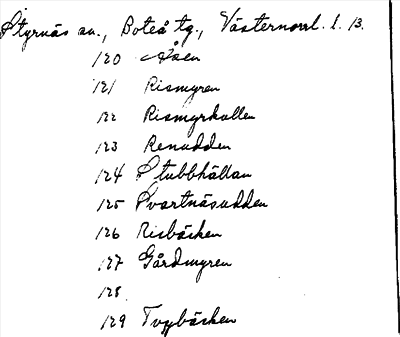 Styrnäs sn., Boteå tg., Västernorrl. l. 13.
120 Åsen
121 Rismyren
122 Rismyrkullen
123 Renudden
124 Stubbhällan
125 Svartnäsudden
126 Risbäcken
127 Gårdmyren
128
129 Tvybäcken